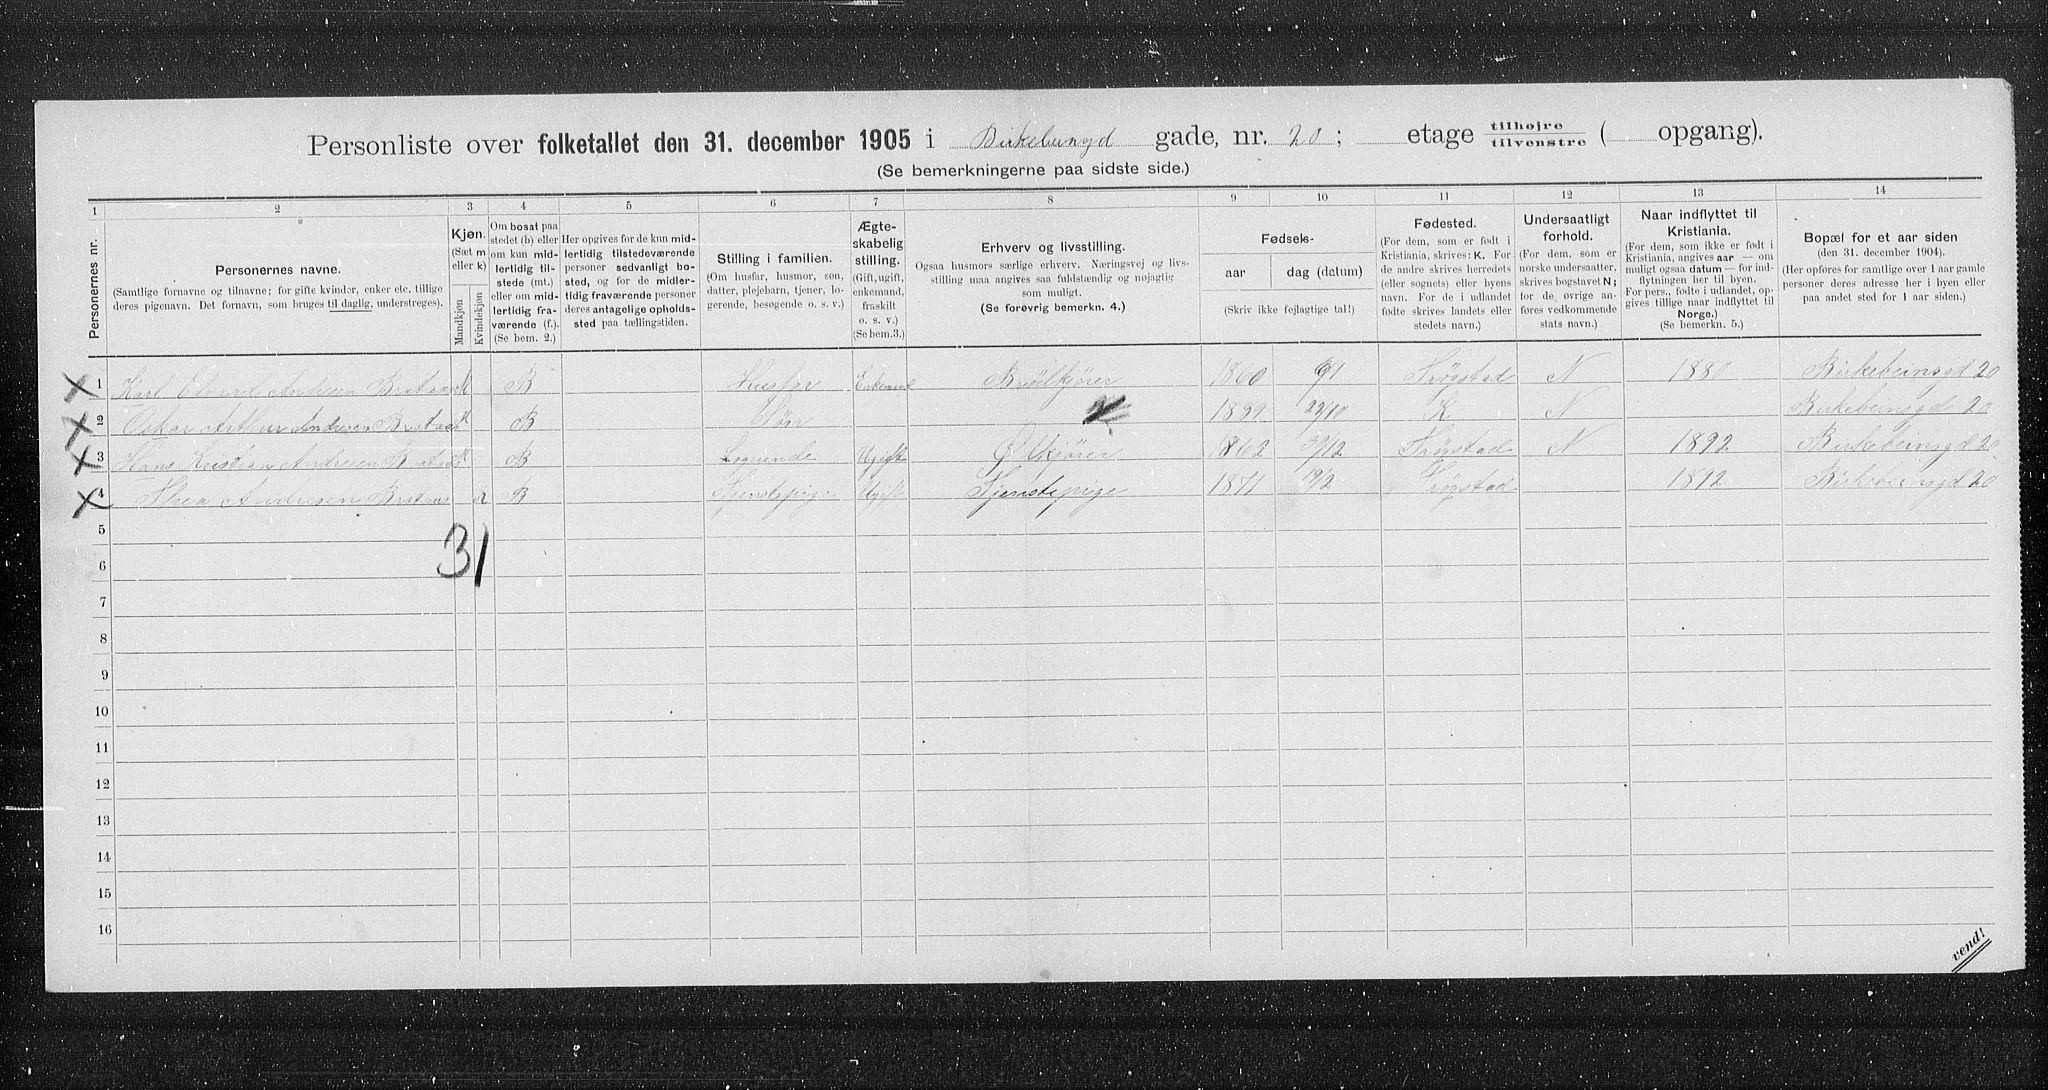 Personliste over folketallet den 31. december 1905 i Birkebeinsgd gade, nr. 20; etage tilhøjre ( opgang).
tilvenstre
(Se bemerkningerne paa sidste side.)
1 2 3 4 5 6 7 8 9 10 11 12 13 14
Personernes nr.
Personernes navne.
(Samtlige fornavne og tilnavne; for gifte kvinder, enker etc. tillige
deres pigenavn. Det fornavn, som bruges til daglig, understreges).
Kjøn.
(Sæt m
eller k)
Mandkjøn
Kvindekjøn
Om bosat paa
stedet (b) eller
om kun mid-
lertidig til-
stede (mt.)
eller om mid-
lertidig fra-
værende (f.).
(Se bem. 2.)
Her opgives for de kun mid-
lertidig tilstedeværende
personer sedvanligt bo-
sted, og for de midler-
tidig fraværende personer
deres antagelige opholds-
sted paa tællingstiden.
Stilling i familien.
(Om husfar, husmor, søn,
datter, plejebarn, tjener, lo-
gerende, besøgende o. s. v.)
Ægte-
skabelig
stilling.
(Gift, ugift,
enkemand,
fraskilt
o. s. v.)
(Se bem.3.)
Erhverv og livsstilling.
Ogsaa husmors særlige erhverv. Næringsvej og livs-
stilling maa angives saa fuldstændig og nøjagtig
som muligt.
(Se forøvrig bemerkn. 4.)
Fødsels-
aar dag (datum)
(Skriv ikke fejlagtige tal!)
Fødested.
(For dem, som er født i
Kristiania, skrives: K. For
de andre skrives herredets
(eller sognets) eller byens
navn. For de i udlandet
fødte skrives landets eller
stedets navn.)
Undersaatligt
forhold.
(For dem, som er
norske undersaatter,
skrives bogstavet N;
for de øvrige an-
føres vedkommende
stats navn.)
Naar indflyttet til
Kristiania.
(For dem, som ikke er født i
Kristiania, angives aar — om
muligt ogsaa datum — for ind-
flytningen her til byen.
For pers., fødte i udlandet, op-
gives tillige naar indflyttet til
Norge.)
(Se bemerkn. 5.)
Bopæl for et aar siden
(den 31. december 1904).
(Her opføres for samtlige over 1 aar gamle
personer deres adresse her i byen eller
paa andet sted for 1 aar siden.)
1 Karl Edvard Andresen Brataas M B Husfar Enkemand Brølkjører 1860 9/1 Trøgstad N 1880 Birkebeinsgd 20
2 Oskar Arthur Andresen Brataas M B Søn 1889 22/10 K N Birkebeinsgd 20
3 Hans Kristian Andresen Brataas M B Logerende Ugift Ølkjører 1862 30/12 Trøgstad N 1892 Birkebeinsgd 20
4 Thea Andresen Brataas K B Tjenstepige Ugift Tjenstepige 1871 19/2 Trøgstad 1892 Birkebeinsgd 20
5
31
6
7
8
9
10
11
12
13
14
15
16
vend!